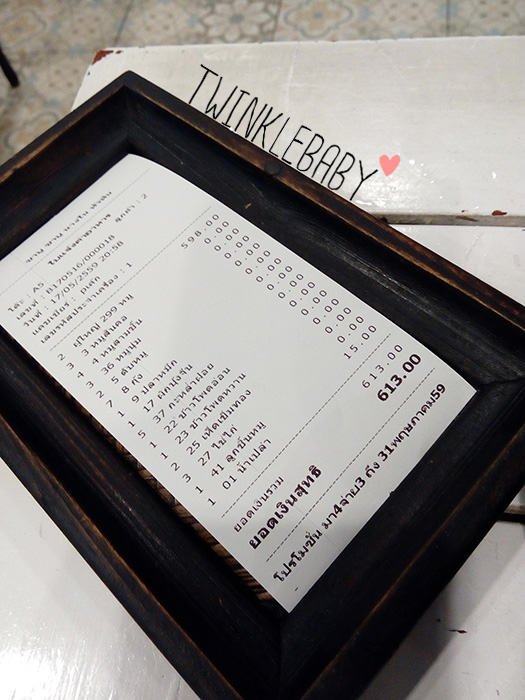 TWINKLEBABY
ใบแจ้งค่าอาหาร ลูกค้า : 2
โต๊ะ : A5
เลขที่ : B170516/000018
วันที่ : 17/05/2559 20:58
แคชเชียร์ :
เลขรหัสประจำเครื่อง : 1
2 บุฟใหญ่ 299 หมู 598.00
3 3 หมูสันคอ 0.00
4 4 หมูสามชั้น 0.00
3 36 หมูนุ่ม 0.00
2 5 ตับหมู 0.00
7 8 กุ้ง 0.00
1 9 ปลาหมึก 0.00
1 17 ผักบุ้งจีน 0.00
5 37 กะหล่ำฝอย 0.00
1 22 ข้าวโพดอ่อน 0.00
1 23 ข้าวโพดหวาน 0.00
2 25 เห็ดเข็มทอง 0.00
3 27 ไข่ไก่ 0.00
1 41 ลูกชิ้นหมู 0.00
1 01 น้ำเปล่า 15.00
ยอดเงินรวม 613.00
ยอดเงินสุทธิ 613.00
โปรโมชั่น มา4จ่าย3 ถึง 31พฤษภาคม59